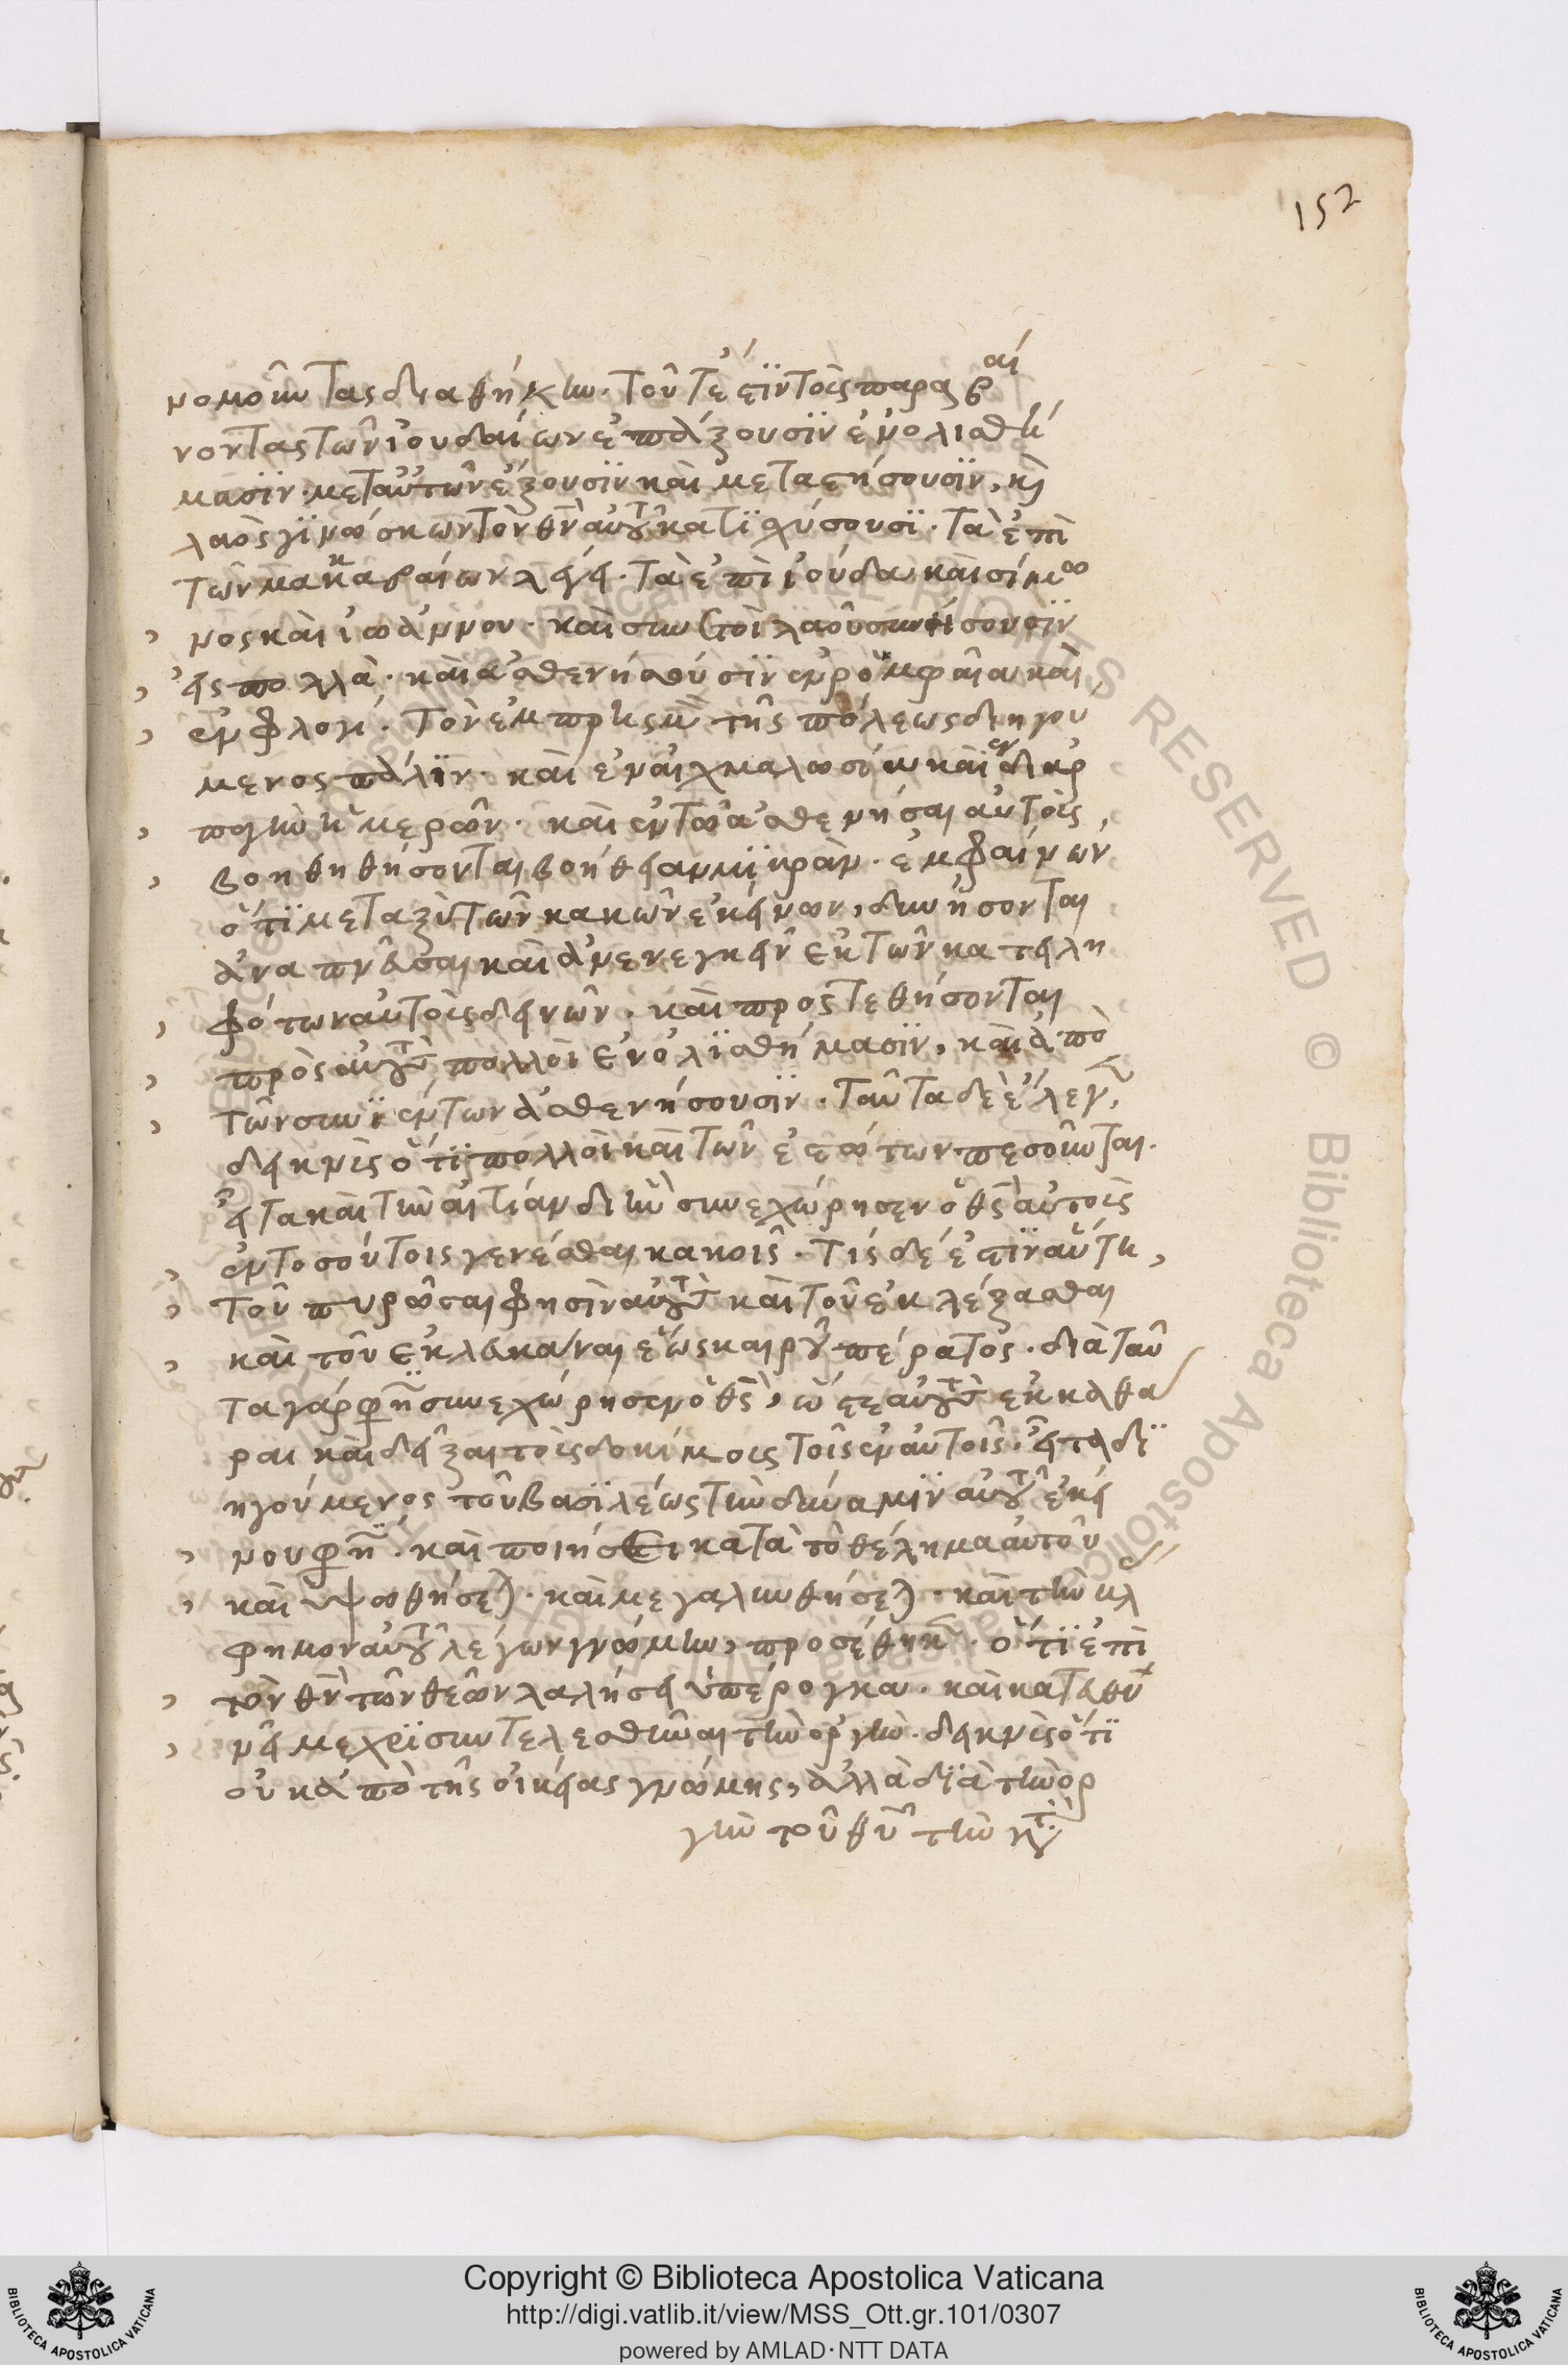 152
νομοῦντας διαθήκην. τοῦτέστιν τοὺς παραβαί
νοντας τῶν ἰουδαίων ἐπάξουσϊν ἐν ὀλισθή
μασϊν. μεταὐτῶν ἕξουσϊν καὶ μεταστήσουσϊν, κὶ
λαὸς γϊνώσκων τὸν θν̄ αὐτοῦ κατϊσχύσουσϊ. τὰ ἐπὶ
τῶν μακκαβαίων λέγει. τὰ ἐπὶ ἰούδαν καὶ σίμω
νος καὶ ἰωάννου. καὶ συνετοὶ λαοῦ συνήσουσϊν
εἰς πολλὰ. καὶ ἀσθενήσουσϊν ἐν ῥομφαία καὶ
ἐν φλογί. τὸν ἐμπρησμὸν τῆς πόλεως διηγού
μενος πάλϊν. καὶ ἐν αἰχμαλωσία καὶ ἐν διαρ
παγὴ ἡμερῶν. καὶ ἐν τῶ ἀσθενῆσαι αὐτοὺς
βοηθηθήσονται βοήθειαν μϊκρὰν. ἐμφαίνων
ὅτϊ μεταξὺ τῶν κακῶν ἐκείνων, δυνήσονται
ἀναπνεῦσαι καὶ ἀνενεγκεῖν ἐκ τῶν κατειλη
φότων αὐτοὺς δεινῶν. καὶ προστεθήσονται
πρὸς αὐτοὺς πολλοὶ ἐν ὀλϊσθήμασϊν, καὶ ἀπὸ
τῶν συνϊέντων ἀσθενήσουσϊν. ταῦτα δὲ ἔλεγεν,
δεικνὺς ὅτϊ πολλοὶ καὶ τῶν ἑστώτων πεσοῦνται.
εἶτα καὶ τὴν αἰτίαν δι ἣν συνεχώρησεν ὁ θς̄ αὐτοὺς
ἐν τοσούτοις γενέσθαι κακοῖς. τίς δέ ἐστϊν αὕτη,
τοῦ πυρῶσαι φησὶν αὐτοὺς καὶ τοῦ ἐκλέξασθαι
καὶ τοῦ ἐκλευκᾶναι ἕως καιροῦ πέρατος. διὰ ταῦ
τα γάρ φησϊ συνεχώρησεν ὁ θς̄, ὥστε αὐτοὺς ἐκκαθᾶ
ραι καὶ δεῖξαι τοὺς δοκίμους τοῖς ἐν αὐτοῖς. εἶτα δϊ
ηγούμενος τοῦ βασϊλέως τὴν δύναμϊν αὐτοῦ ἐκεί
νου φησϊ. καὶ ποιήσει κατὰ τὸ θέλημα αὐτοῦ
καὶ ὑψωθήσεται. καὶ μεγαλυνθήσεται. καὶ τὴν βλάσ
φημον αὐτοῦ λέγων γνώμην, προσέθηκεν. ὅτϊ ἐπὶ
τὸν θν̄ τῶν θεῶν λαλήσει ὑπέρογκα. καὶ κατευθυ
νεῖ μέχρϊ συντελεσθῆναι τὴν ὀργὴν. δεικνὺς ὅτϊ
οὐκ ἀπὸ τῆς οἰκείας γνώμης, ἀλλὰ δϊὰ τὴν ὀρ
γὴν τοῦ θῡ τὴν κατὰ
Copyright © Biblioteca Apostolica Vaticana
http://digi.vatlib.it/view/MSS_Ott.gr.101/0307
powered by AMLAD·NTT DATA